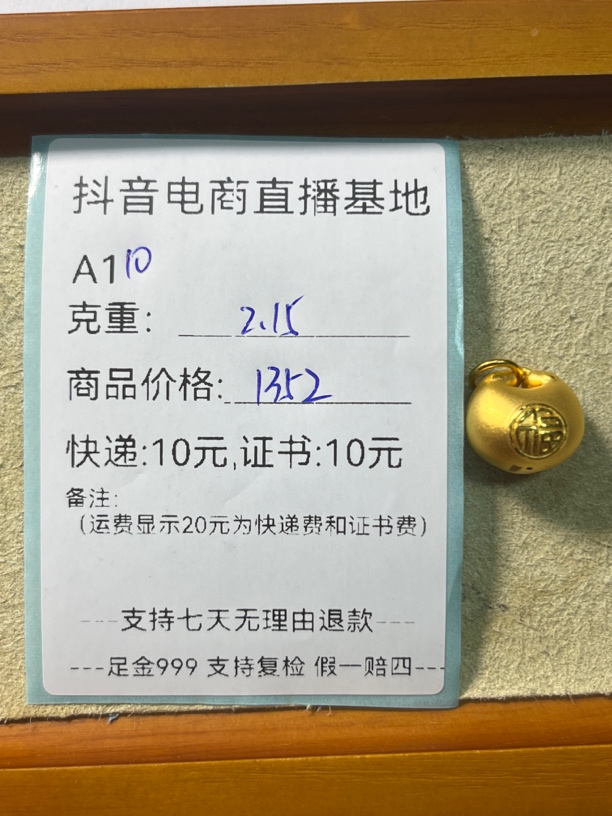 抖音电商直播基地
A110
克重: 2.15
商品价格: 1352
快递:10元,证书:10元
备注:
(运费显示20元为快递费和证书费)
---支持七天无理由退款---
---足金999 支持复检 假一赔四---
福